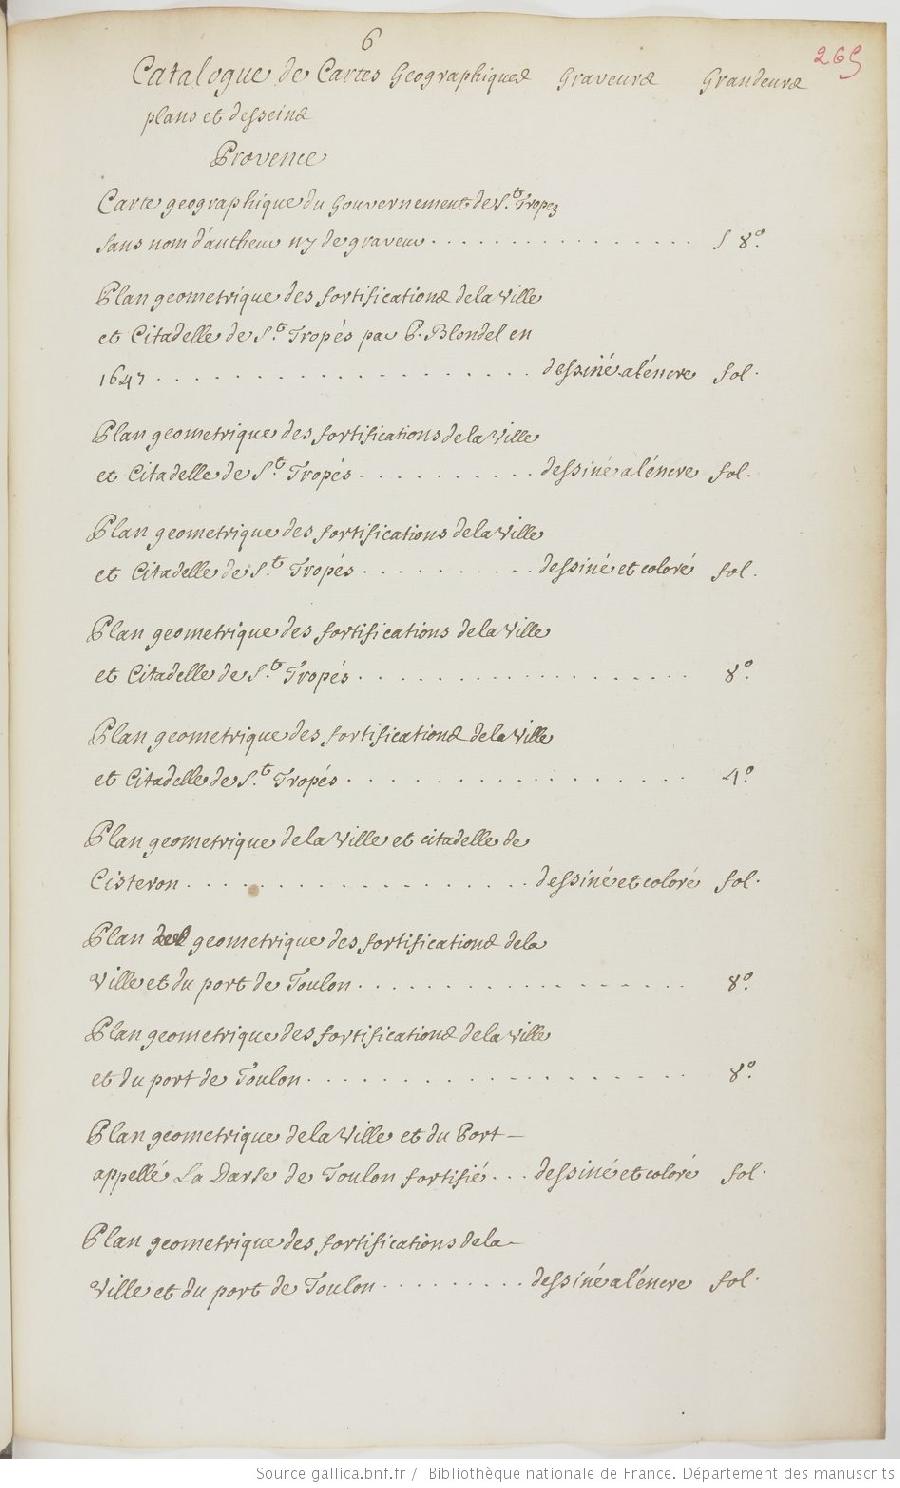 6
265
Catalogue de Cartes Geographiques Graveurs Grandeurs
plans et desseins
Provence
Carte geographique du Gouvernement de S.t Tropez
sans nom d'autheur ny de graveur . . . . . . . . . . . . . . . . 8.º
Plan geometrique des fortifications de la Ville
et Citadelle de S.t Tropés par P. Blondel en
1647 . . . . . . . . . . . . . . . . . . . dessiné a l'éncre fol.
Plan geometrique des fortifications de la Ville
et Citadelle de S.t Tropés . . . . . . . . . . dessiné a l'éncre fol.
Plan geometrique des fortifications de la Ville
et Citadelle de S.t Tropés . . . . . . . . . . dessiné et coloré fol.
Plan geometrique des fortifications de la Ville
et Citadelle de S.t Tropés . . . . . . . . . . . . . . . . . . 8.º
Plan geometrique des fortifications de la Ville
et Citadelle de S.t Tropés . . . . . . . . . . . . . . . . . . 4.º
Plan geometrique de la Ville et citadelle de
Cisteron . . . . . . . . . . . . . . . . . . dessiné et coloré fol.
Plan geometrique des fortifications de la
Ville et du port de Toulon . . . . . . . . . . . . . . . . . . 8.º
Plan geometrique des fortifications de la Ville
et du port de Toulon . . . . . . . . . . . . . . . . . . . . 8.º
Plan geometrique de la Ville et du Port
appellé La Darse de Toulon fortifié . . . dessiné et coloré fol.
Plan geometrique des fortifications de la
Ville et du port de Toulon . . . . . . . . . dessiné a l'éncre fol.
Source gallica.bnf.fr / Bibliothèque nationale de France. Département des manuscrits